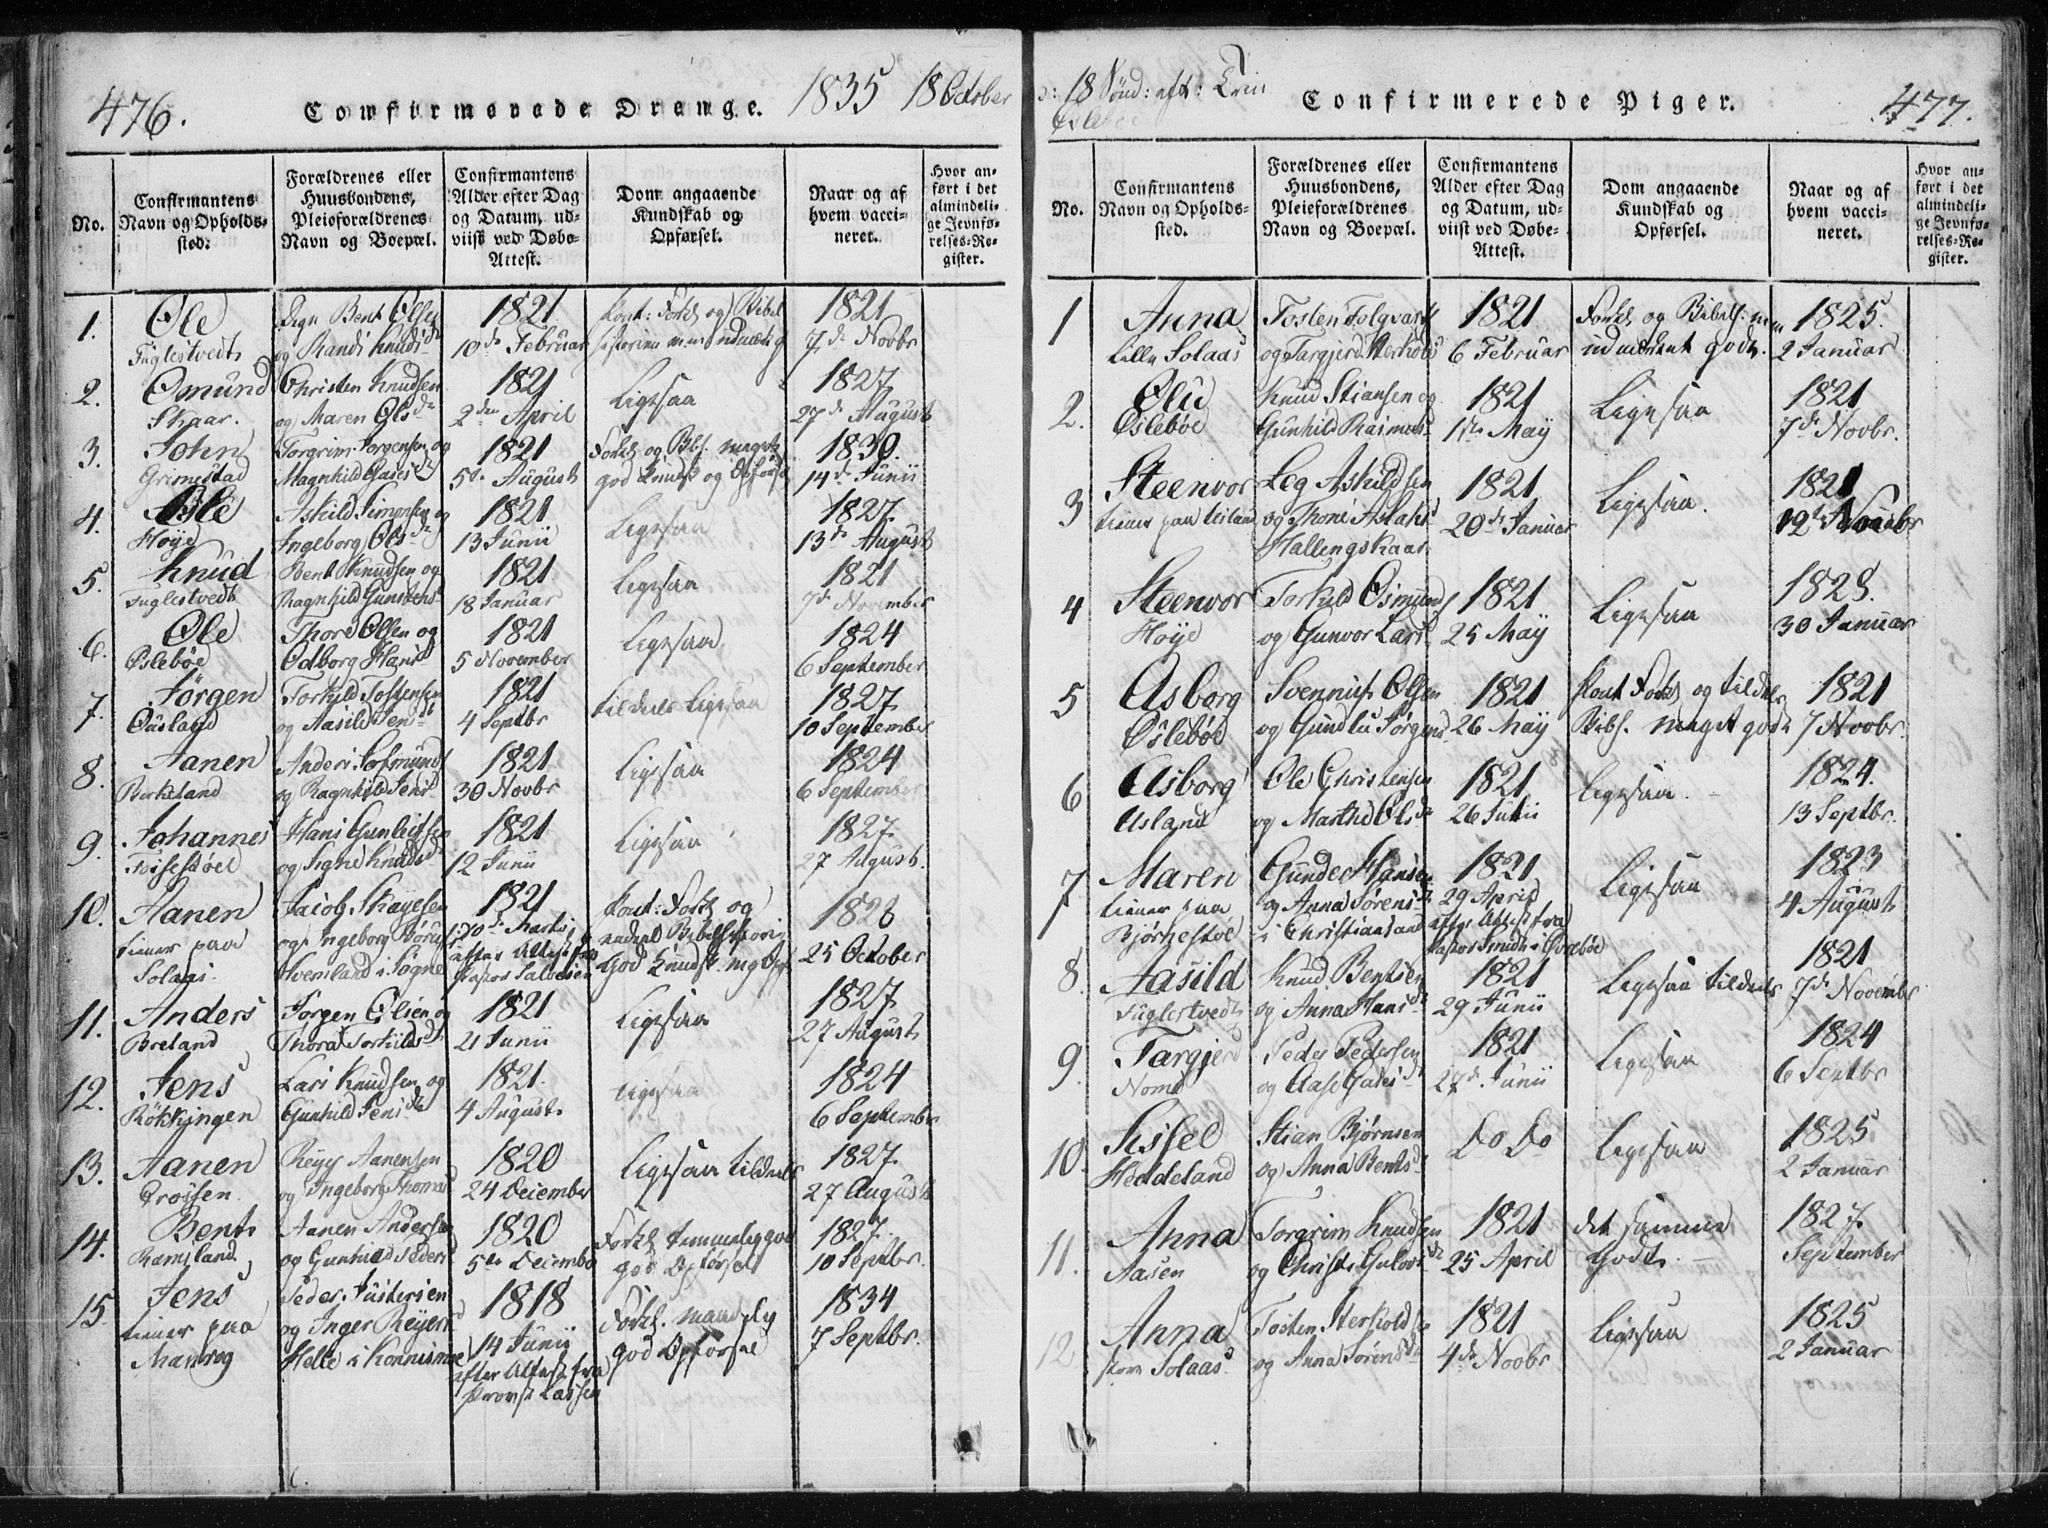 476.
Confirmerede Drenge.
1835 18 October
No.
Confirmantens Navn og Opholds-sted.
Forældrenes eller Huusbondens, Pleieforældrenes Navn og Boepæl.
Confirmantens Alder efter Dag og Datum, ud-viist ved Døbe-Attest.
Dom angaaende Kundskab og Opførsel.
Naar og af hvem vacci-neret.
Hvor an-ført i det almindeli-ge Jevnfø-relses-Re-gister.
1. Ole
Fuglestvedt
Bent Olsen
og Randi Knuds
1821
10de Februar
1821
7de Novbr
2. Omund
Skaar.
Christen Knudsen
og Maren Olsdr
1821
2den April
Ligesaa
1827
27de August
3. John
Grimestad
Torgrim Jørgensen og
Magnhild
1821
5te August
god Kundsk og Opførsel
1830.
14de Junii
4. Asle
Høye
Askild Simonsen og
Ingeborg Olsdr
1821
13 Junii
Ligesaa
1827.
13de August
5. Knud
Fuglestvedt
Bent Knudsen og
Ragnhild Gunstens
1821
18 Januar
Ligesaa
1821
7de November
6. Ole
Øslebøe
Thore Olsen og
Odborg Hans
1821
5 November
Ligesaa
1824
6 September
7. Jørgen
Øusland
Torkild Tostensen
og Aasild Jensdr
1821
4 Septbr
tildeels Ligesaa
1827.
10 September
8. Aanen
Birkeland
Anders
og Ragnhild Jens
1821
30 Novbr
Ligesaa
1824
6 September
9. Johannes
Hans Gunleifsen
og Signe Knudsdr
1821
12 Junii
Ligesaa
1827.
27 August.
10. Aanen
tiener paa
Solaas.
Jacob
og Ingeborg
i Søgne
1821
efter Attest fra
Pastor
Kont: Forkl og
1828
25 October
11. Anders
Breland
Jørgen Olsen og
Thora Torkildsdr
1821
21 Junii
Ligesaa
1827.
27 August
12. Jens
Røkkingen
Lars Knudsen og
Gunhild Jensdr
1821.
4 August
Ligesaa
1824
6 September
13. Aanen
Reyer Aanensen
og Ingeborg Thomas
1820
24 December
Ligesaa tildeels
1827.
27 August
14. Bent
Ramsland
Aanen Andersen
og Gunhild Peders
1820
5te December
Forkl temmelig god
god Opførsel
1827.
10 Septbr.
15 Jens
tiener paa
Manrog
Peder
og Inger Reyers
Helle i
1818
14 Junii
efter Attest fra
Provst Lassen
Forkl. maadelig
god Opførsel
1834
7 Septbr.
18 Sønd: aft: Trin
Øslebøe
Confirmerede Piger.
477.
No.
Confirmantens Navn og Opholds-sted.
Forældrenes eller Huusbondens, Pleieforældrenes Navn og Boepæl.
Confirmantens Alder efter Dag og Datum, ud-viist ved Døbe-Attest.
Dom angaaende Kundskab og Opførsel.
Naar og af hvem vacci-neret.
Hvor an-ført i det almindeli-ge Jevnfø-relses-Re-gister.
1 Anna
Lille Solaas
Tosten
og Targjerd
1821
6 Februar
udmærket godt.
1825.
2 Januar
2. Olu
Øslebøe
Knud Stiansen og
Gunhild Rasmus
1821
1ste May
Ligesaa
1821
7de Novbr.
3 Steenvor
tiener paa
Leg Askildsen
og Thone Aslaks
Hallingskaar
1821
20de Januar
Ligesaa.
1821
12te
4 Steenvor
Høye
Torkild Osmunds
og Gunvor Lars
1821
25 May
Ligesaa
1828.
30 Januar
5 Asborg
Øslebøe
Svennius Olsen
og Gundlu Jørgens
1821
26 May
Kont Forkl og tildeels
Bibl. meget godt
1821
7 Novbr.
6 Asborg
Usland
Ole Christensen
og Marthe Olsdr
1821
26 Julii
Ligesaa.
1824.
13 Septbr.
7 Maren
tiener paa
Bjørnestøl
Gunder Hansen
og Anna Sørensdr
i Christiansand
1821
29 April
efter Attest fra
Pastor Smith i
Ligesaa
1823
4 August
8. Aasild
Fuglestvedt
Knud Bentsen
og Anna Hansdr
1821
29 Junii
Ligesaa tildeels
1821
7de Novembr
9. Targjerd
Nome
Peder Pedersen
og Aase
1821
27de Junii
Ligesaa
1824
6 Septbr
10. Sissel
Heddeland
Stian Bjørnsen
og Anna Bentsdr
Do Do
Ligesaa
1825
2 Januar
11. Anna
Aasen
Torgrim Knudsen
og
1821
25 April
det samme
Godt.
1827.
September
12 Anna
Store Solaas
Tosten
og Anna Sørensdr
1821
4de Novbr
Ligesaa
1825
2 Januar